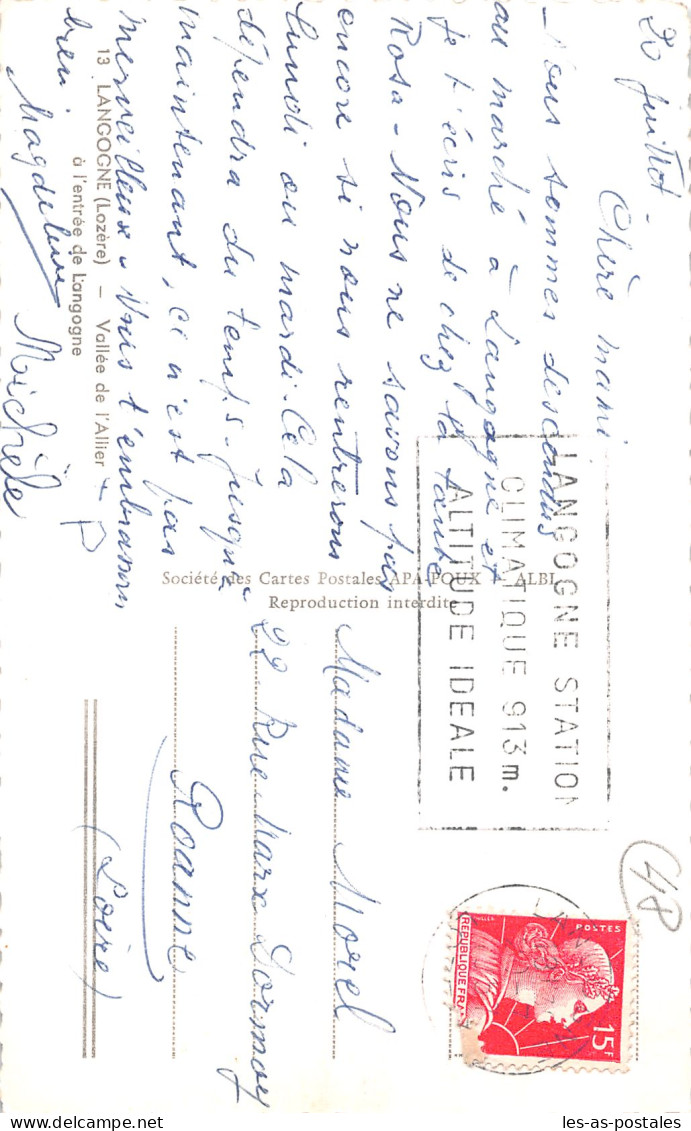 20 juillet -
Chère mami
Nous sommes descendus
au marché à Langogne et
je t'écris de chez la tante
Rosa - Nous ne savons pas
encore si nous rentrerons
lundi ou mardi. Cela
dépendra du temps - jusqu'à
maintenant, ce n'est pas
merveilleux. Nous t'embrassons
bien.
Magdeleine
Michèle
13 LANGOGNE (Lozère) — Vallée de l'Allier
à l'entrée de Langogne
Société des Cartes Postales APA-POUX - ALBI
Reproduction interdite
LANGOGNE STATION
CLIMATIQUE 913 m.
ALTITUDE IDEALE
48
POSTES
15F
REPUBLIQUE FRA
MULLER
Madame Morel
22 Rue Marx Dormoy
Roanne
(Loire)
les-as-postales.com